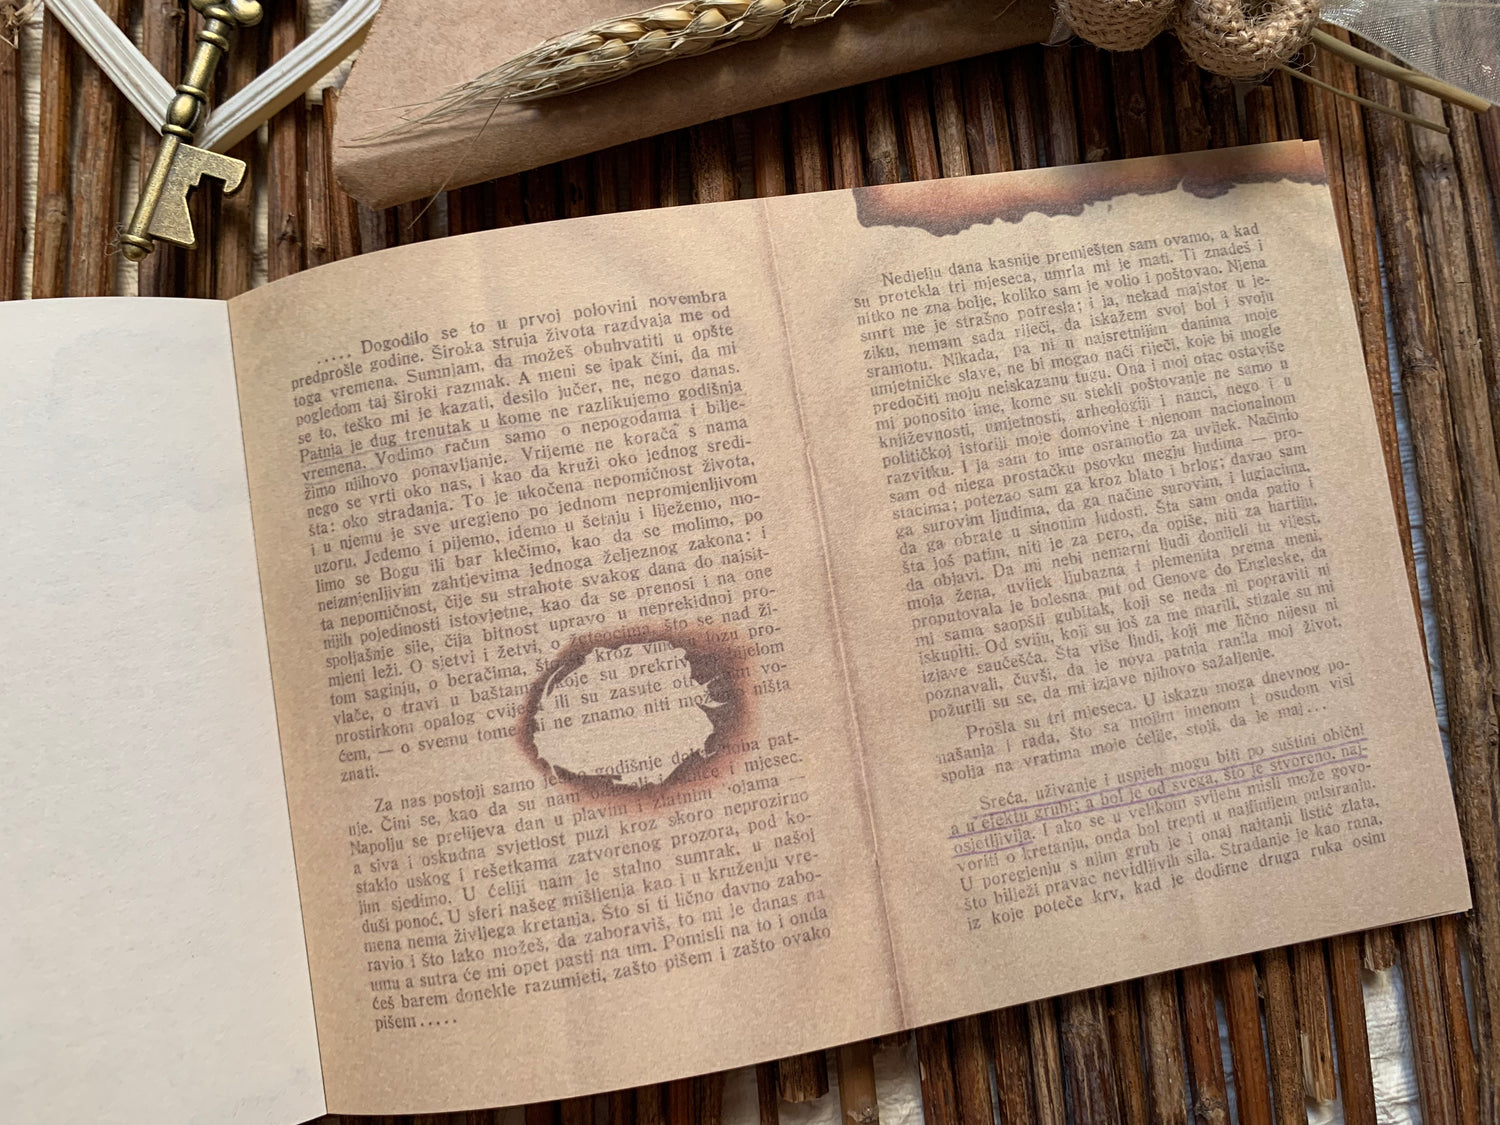 ..... Dogodilo se to u prvoj polovini novembra
predprošle godine. Široka struja života razdvaja me od
toga vremena. Sumnjam, da možeš obuhvatiti u opšte
pogledom taj široki razmak. A meni se ipak čini, da mi
se to, teško mi je kazati, desilo jučer, ne, nego danas.
Patnja je dug trenutak u kome ne razlikujemo godišnja
vremena. Vodimo račun samo o nepogodama i bilje-
žimo njihovo ponavljanje. Vrijeme ne korača s nama
nego se vrti oko nas, i kao da kruži oko jednog sredi-
šta: oko stradanja. To je ukočena nepomičnost života,
i u njemu je sve uregjeno po jednom nepromjenljivom
uzoru. Jedemo i pijemo, idemo u šetnju i liježemo, mo-
limo se Bogu ili bar klečimo, kao da se molimo, po
neizmjenljivim zahtjevima jednoga željeznog zakona: i
ta nepomičnost, čije su strahote svakog dana do najsit-
nijih pojedinosti istovjetne, kao da se prenosi i na one
spoljašnje sile, čija bitnost upravo u neprekidnoj pro-
mjeni leži. O sjetvi i žetvi, o žeteocima, što se nad ži-
tom saginju, o beračima, što kroz lozu pro-
vlače, o travi u baštama koje su prekriv bijelom
prostirkom opalog cvije ili su zasute vo-
ćem, — o svemu tome i ne znamo niti mo ništa
znati.
Za nas postoji samo godišnje doba pat-
nje. Čini se, kao da su nam i mjesec.
Napolju se prelijeva dan u plavim i zlatnim bojama —
a siva i oskudna svjetlost puzi kroz skoro neprozirno
staklo uskog i rešetkama zatvorenog prozora, pod ko-
jim sjedimo. U ćeliji nam je stalno sumrak, u našoj
duši ponoć. U sferi našeg mišljenja kao i u kruženju vre-
mena nema življega kretanja. Što si ti lično davno zabo-
ravio i što lako možeš, da zaboraviš, to mi je danas na
umu a sutra će mi opet pasti na um. Pomisli na to i onda
ćeš barem donekle razumjeti, zašto pišem i zašto ovako
pišem.....
Nedjelju dana kasnije premješten sam ovamo, a kad
su protekla tri mjeseca, umrla mi je mati. Ti znadeš i
nitko ne zna bolje, koliko sam je volio i poštovao. Njena
smrt me je strašno potresla; i ja, nekad majstor u je-
ziku, nemam sada riječi, da iskažem svoj bol i svoju
sramotu. Nikada, pa ni u najsretnijim danima moje
umjetničke slave, ne bi mogao naći riječi, koje bi mogle
predočiti moju neiskazanu tugu. Ona i moj otac ostaviše
mi ponosito ime, kome su stekli poštovanje ne samo u
književnosti, umjetnosti, arheologiji i nauci, nego i u
političkoj istoriji moje domovine i njenom nacionalnom
razvitku. I ja sam to ime osramotio za uvijek. Načinio
sam od njega prostačku psovku megju ljudima — pro-
stacima; potezao sam ga kroz blato i brlog; davao sam
ga surovim ljudima, da ga načine surovim, i lugjacima,
da ga obrate u sinonim ludosti. Šta sam onda patio i
šta još patim, niti je za pero, da opiše, niti za hartiju,
da objavi. Da mi nebi nemarni ljudi donijeli tu vijest,
moja žena, uvijek ljubazna i plemenita prema meni,
proputovala je bolesna put od Genove do Engleske, da
mi sama saopšti gubitak, koji se neda ni popraviti ni
iskupiti. Od sviju, koji su još za me marili, stizale su mi
izjave saučešća. Šta više ljudi, koji me lično nijesu ni
poznavali, čuvši, da je nova patnja ranila moj život,
požurili su se, da mi izjave njihovo sažaljenje.
Prošla su tri mjeseca. U iskazu moga dnevnog po-
našanja i rada, što sa mojim imenom i osudom visi
spolja na vratima moje ćelije, stoji, da je maj...
Sreća, uživanje i uspjeh mogu biti po suštini obični
a u efektu grubi; a bol je od svega, što je stvoreno, naj-
osjetljivija. I ako se u velikom svijetu misli može govo-
voriti o kretanju, onda bol trepti u najfinijem pulsiranju.
U poregjenju s njim grub je i onaj najtanji listić zlata,
što bilježi pravac nevidljivih sila. Stradanje je kao rana,
iz koje poteče krv, kad je dodirne druga ruka osim